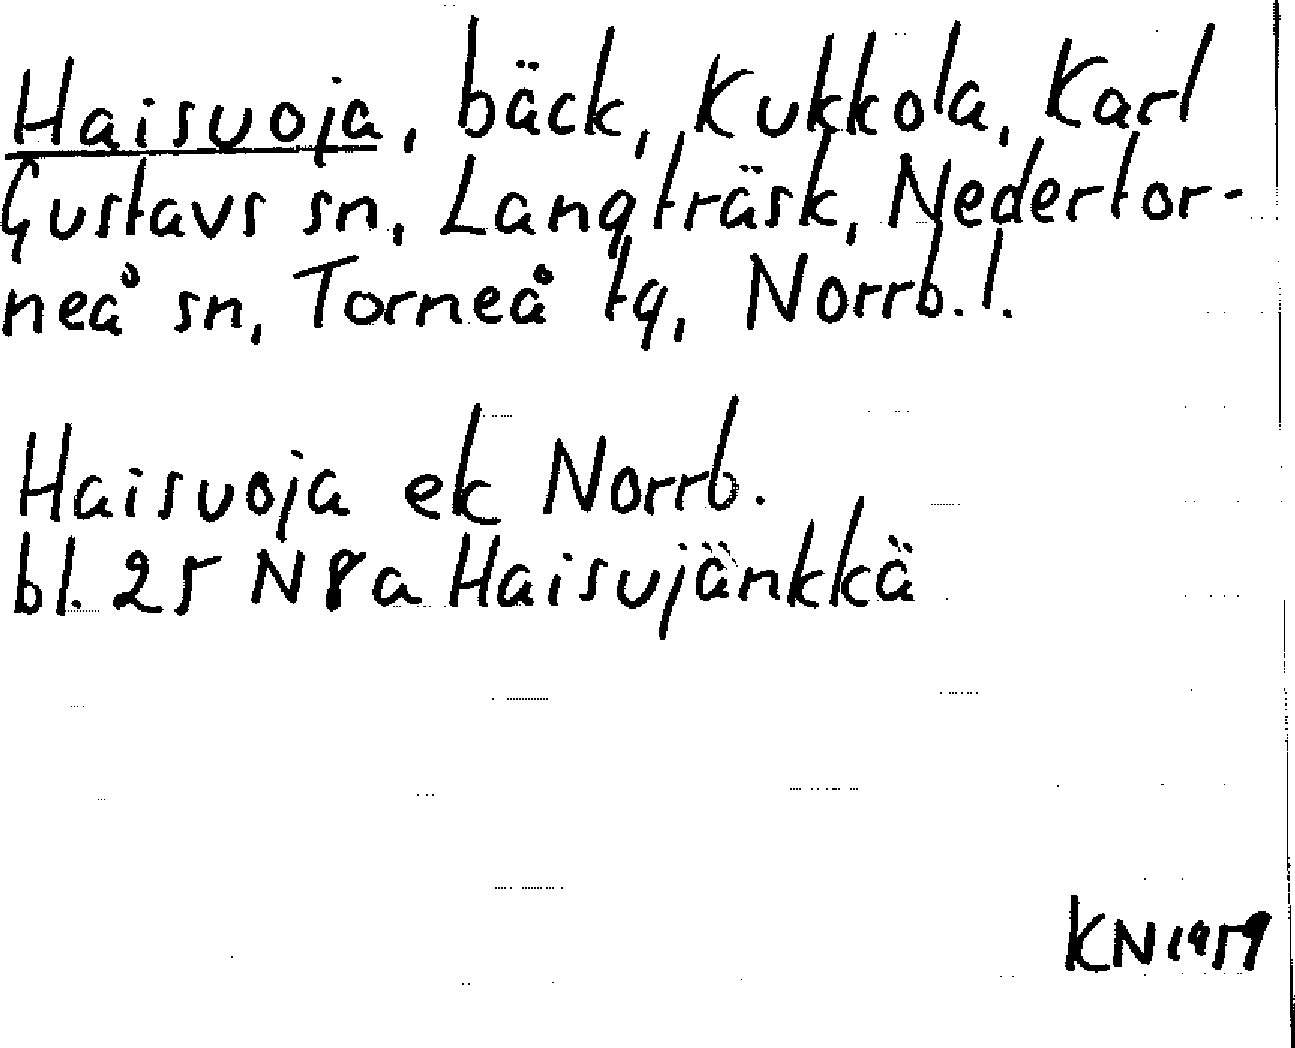 Haisuoja, bäck, Kukkola, Karl
Gustavs sn, Langträsk, Nedertor-
neå sn, Torneå tg, Norrb. l.
Haisuoja ek Norrb.
bl. 25 N8a Haisujänkkä
KN 1959